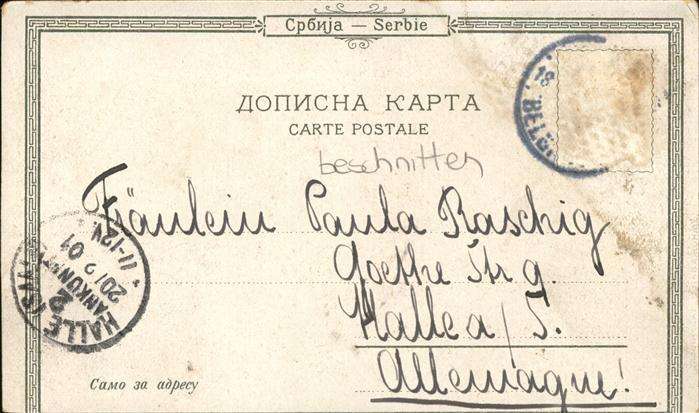 Србија — Serbie
ДОПИСНА КАРТА
CARTE POSTALE
beschnitten
Fräulein Paula Raschig
Goethe Str 9.
Halle a/S.
Allemagne!
Само за адресу
18
BEL
HALLE (S
ANKUN
2
20/2 01
11-12